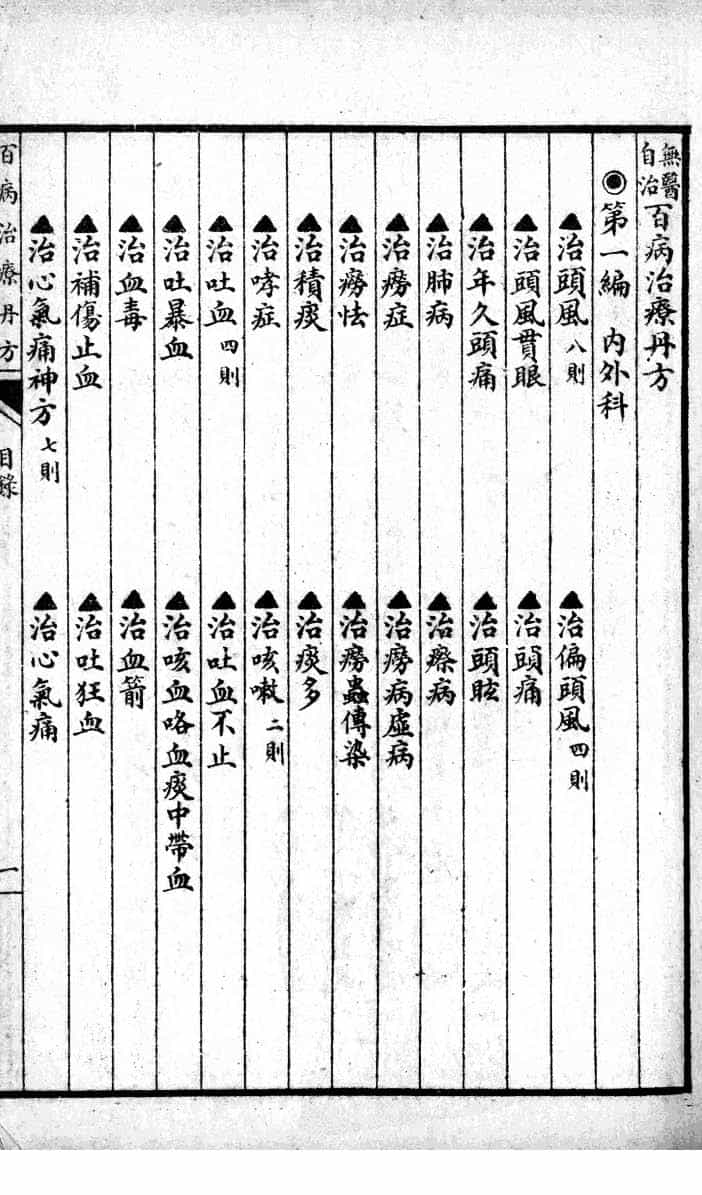 無醫自治百病治療丹方
◉第一編　內外科
▲治頭風八則　▲治偏頭風四則
▲治頭風貫眼　▲治頭痛
▲治年久頭痛　▲治頭眩
▲治肺病　▲治瘵病
▲治癆症　▲治癆病虛病
▲治癆怯　▲治癆蟲傳染
▲治積痰　▲治痰多
▲治哮症　▲治咳嗽二則
▲治吐血四則　▲治吐血不止
▲治吐暴血　▲治咳血咯血痰中帶血
▲治血毒　▲治血箭
▲治補傷止血　▲治吐狂血
▲治心氣痛神方七則　▲治心氣痛
百病治療丹方　目錄　一